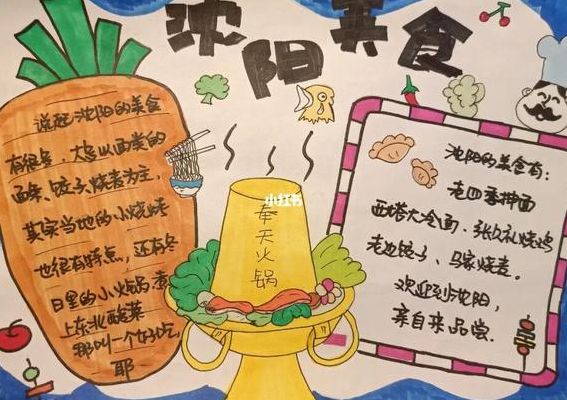 沈阳美食
说起沈阳的美食
有很多,大多以面类的
面条、饺子烧麦为主,
其实当地的小烧烤
也很有特点,还有冬
日里的小火锅煮
上东北酸菜
那叫一个好吃
耶
小红书
奉天火锅
沈阳的美食有:
老四季抻面
西塔大冷面、张久礼烧鸡
老边饺子、马家烧麦。
欢迎到沈阳,
亲自来品尝.